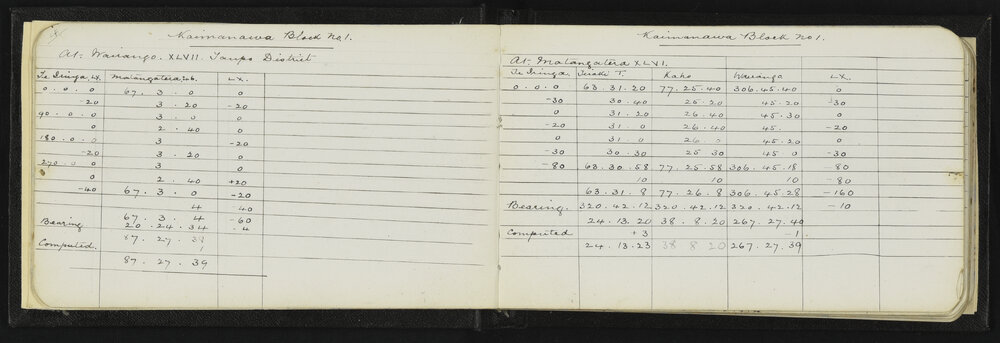 Kaimanawa Block No 1.
At. Wairango. XLVII. Taupo District
Te Iringa, LX. Matangatera, 46. LX.
0. 0. 0 67. 3. 0 0
-20 3. 20 -20
90. 0. 0 3. 0 0
0 2. 40 0
180. 0. 0 3 -20
-20 3. 20 0
270. 0. 0 3 0
0 2. 40 +20
-40 67. 3. 0 -20
4 -40
67. 3. 4 -60
Bearing 20. 24. 34 -4
87. 27. 38
Computed. 1
87. 27. 39
Kaimanawa Block No 1.
At. Matangatera XLVI.
Te Iringa. Turaki T. Kaho Wairango LX.
0. 0. 0 63. 31. 20 77. 25. 40 306. 45. 40 0
-30 30. 40 25. 20 45. 20 -30
0 31. 20 26. 40 45. 30 0
-20 31. 0 26. 40 45. -20
0 31. 0 26. 0 45. 20 0
-30 30. 30 25 30 45. 0 -30
-80 63. 30. 58 77. 25. 58 306. 45. 18 -80
10 10 10 -80
63. 31. 8 77. 26. 8 306. 45. 28 -160
Bearing. 320. 42. 12 320. 42. 12 320. 42. 12 -10
24. 13. 20 38. 8. 20 267. 27. 40
Computed +3 -1
24. 13. 23 38 8 20 267. 27. 39